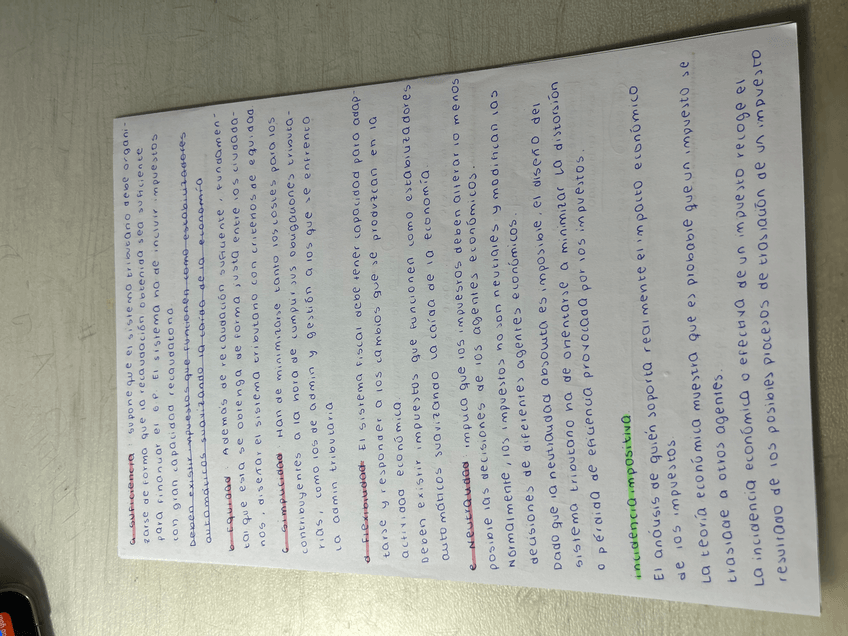 a. Suficiencia: supone que el sistema tributario debe organi-
zarse de forma que la recaudación obtenida sea suficiente
para financiar el G.P. El sistema ha de incluir impuestos
con gran capacidad recaudatoria.
Deben existir impuestos que funcionen como estabilizadores
automáticos suavizando la caida de la economía
b. Equidad. Además de recaudación suficiente, fundamen-
tal que esta se obtenga de forma justa entre los ciudada-
nos, diseñar el sistema tributario con criterios de equidad
c. Simplicidad. Han de minimizarse tanto los costes para los
contribuyentes a la hora de cumplir sus obligaciones tributa-
rias, como los de admin y gestión a los que se enfrenta
la admin tributaria
d. Flexibilidad. El sistema fiscal debe tener capacidad para adap-
tarse y responder a los cambios que se produzcan en la
actividad económica.
Deben existir impuestos que funcionen como estabilizadores
automáticos suavizando la caida de la economía.
e. Neutralidad: implica que los impuestos deben alterar lo menos
posible las decisiones de los agentes económicos.
Normalmente, los impuestos no son neutrales y modifican las
decisiones de diferentes agentes económicos.
Dado que la neutralidad absoluta es imposible, el diseño del
sistema tributario ha de orientarse a minimizar la distorsión
o pérdida de eficiencia provocada por los impuestos.
incidencia impositiva
El análisis de quién soporta realmente el impacto económico
de los impuestos
La teoría económica muestra que es probable que un impuesto se
traslade a otros agentes.
La incidencia económica o efectiva de un impuesto recoge el
resultado de los posibles procesos de traslación de un impuesto